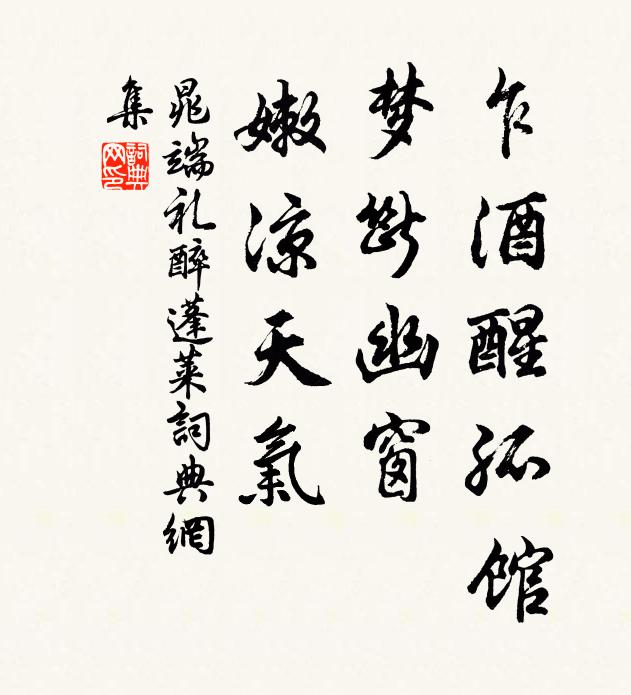 乍酒醒孤館
梦斷幽窗
嫩涼天氣
晁端礼醉蓬萊詞典網
集
詞典网印